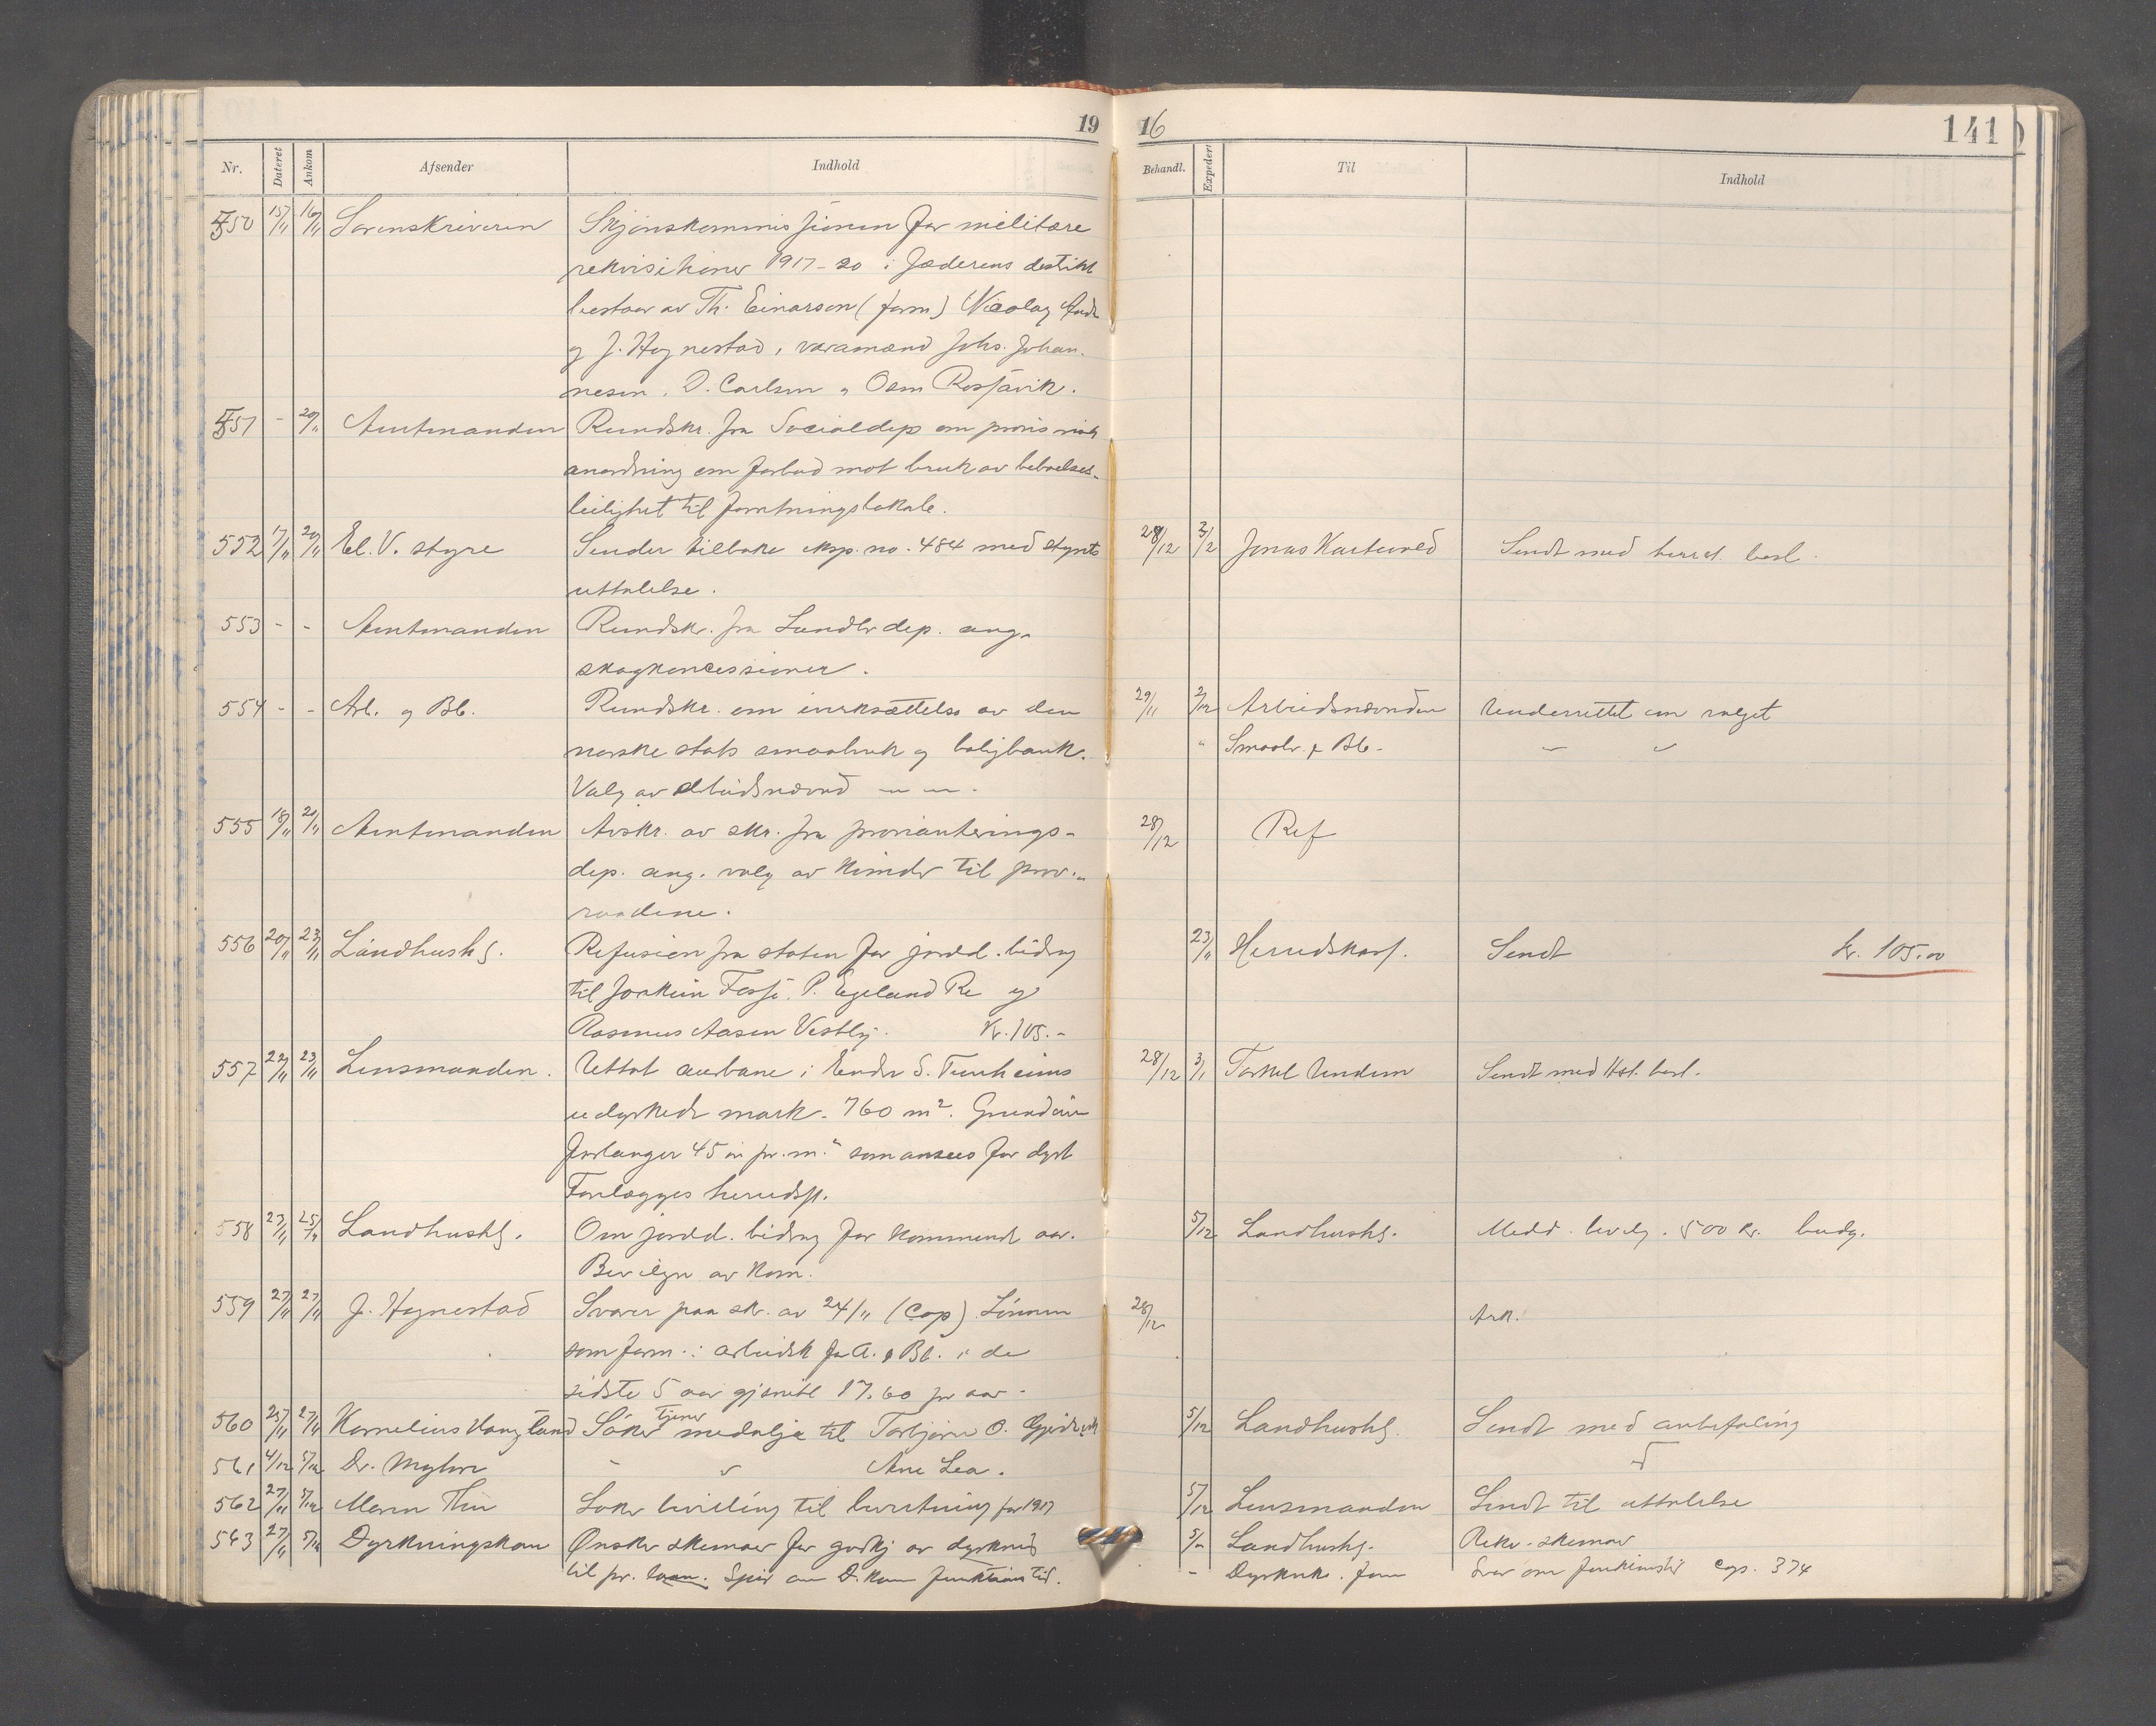 19 16 141
Nr. Dateret Ankom Afsender Indhold Behandl. Expedert Til Indhold
550 15/11 16/11 Sorenskriveren Skjönskommissionen for militære
rekvisitioner 1917-20 i Jæderens
bestaar av Th. Einarson (form) Nicolay
og J. Hognestad, varamænd Johs. Johan-
nesen, O. Carlsen
551 - 20/11 Amtmanden Rundskr. fra Socialdep om provisorisk
anordning om forbud mot bruk av beboelses-
leilighet til forretningslokale.
552 17/11 20/11 El. V. styre Sender tilbake eksp. no. 484 med styrets 28/12 Sendt med
uttalelse.
553 - - Amtmanden Rundskr. fra Landbr dep. ang.
skogkoncessioner.
554 - - Arb. og Bb. Rundskr. om iverksættelse av den 29/11 2/12 Arbeidsnævnden Underrettet om valget
norske stats smaabruk og boligbank. " Smaabr. & Bb - " "
Valg av arbeidsnævnd — " — " —
555 18/11 21/11 Amtmanden Avskr. av skr. fra provianterings- 28/12 Ref
dep. ang. valg av kvinder til prov.-
raadene.
556 20/11 23/11 Landhushs. Refusion fra staten for jordd. bidrag 23/11 Herredskass. Sendt kr. 105.00
til Joakim P. Egeland Re og
Rasmus Aasen Vestly. Kr. 105.-
557 22/11 23/11 Lensmanden. Uttat i Endre S. Tunheims 28/12 3/1 Torkel Undem Sendt med Hst. besl.
udyrkede mark. 760 m². Grundeier
forlanger 45 öre pr. m.² som ansees for dyrt
Forelægges herredsst.
558 23/11 25/11 Landhushs. Om jordd. bidrag for kommende aar. 5/12 Landhushs. Medd. bevilg. 500 kr. budg.
Bevilgn av kom.
559 27/11 27/11 J. Hognestad Svarer paa skr. av 24/11 (Cop) Lönnen 28/12 Ark.
som form. i arbeidsk for A. & Bb. i de
sidste 5 aar gjsnitl 17.60 pr aar.
560 25/11 27/11 Kornelius Haugland Söker tjener medalje til Torbjörn O. 5/12 Landhushs. Sendt med anbefaling
561 4/12 5/12 Dr. Myhre " " Ane Lea. "
562 27/11 5/12 Maren Thu Söker bevilling til bevertning for 1917 5/12 Lensmanden Sendt til uttalelse
563 27/11 5/12 Dyrkningskom Ønsker skemaer for godkj av 5/12 Landhushs. Rekv. skemaer
til pr. Spör om D. kom funktionstid. - Dyrknk. form Svar om funktionstid Cop. 374